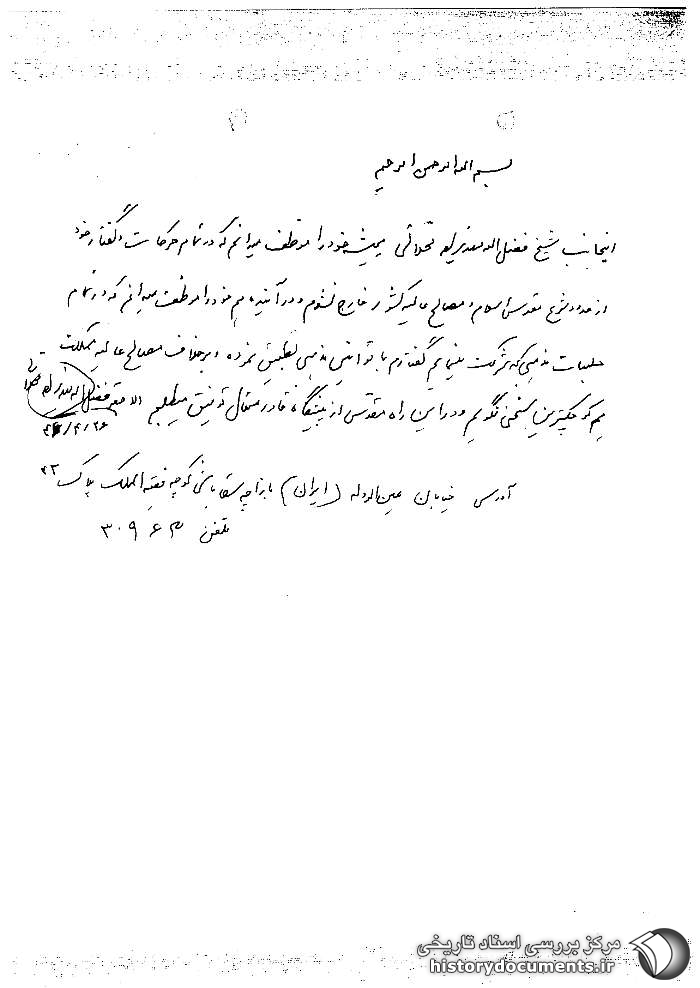 بسم الله الرحمن الرحیم
اینجانب شیخ فضل الله مهدیزاده محلاتی همیشه خود را موظف میدانم که در تمام حرکات و گفتار خود
از حدود شرع مقدس اسلام و مصالح عالیه کشور خارج نشوم و در آتیه هم خود را موظف میدانم که در تمام
جلسات مذهبی که شرکت مینمایم گفتارم با قوانین مذهبی تطبیق نموده و برخلاف مصالح عالیه مملکت
هم کوچکترین سخنی نگویم و در این راه مقدس از پیشگاه قادر متعال توفیق میطلبم الاحقر فضل الله مهدیزاده محلاتی
آدرس خیابان عین الدوله (ایران) بازارچه سقاباشی کوچه فقیه الملک پلاک ۲۳
تلفن ۳۰۹۶۳
مرکز بررسی اسناد تاریخی
historydocuments.ir